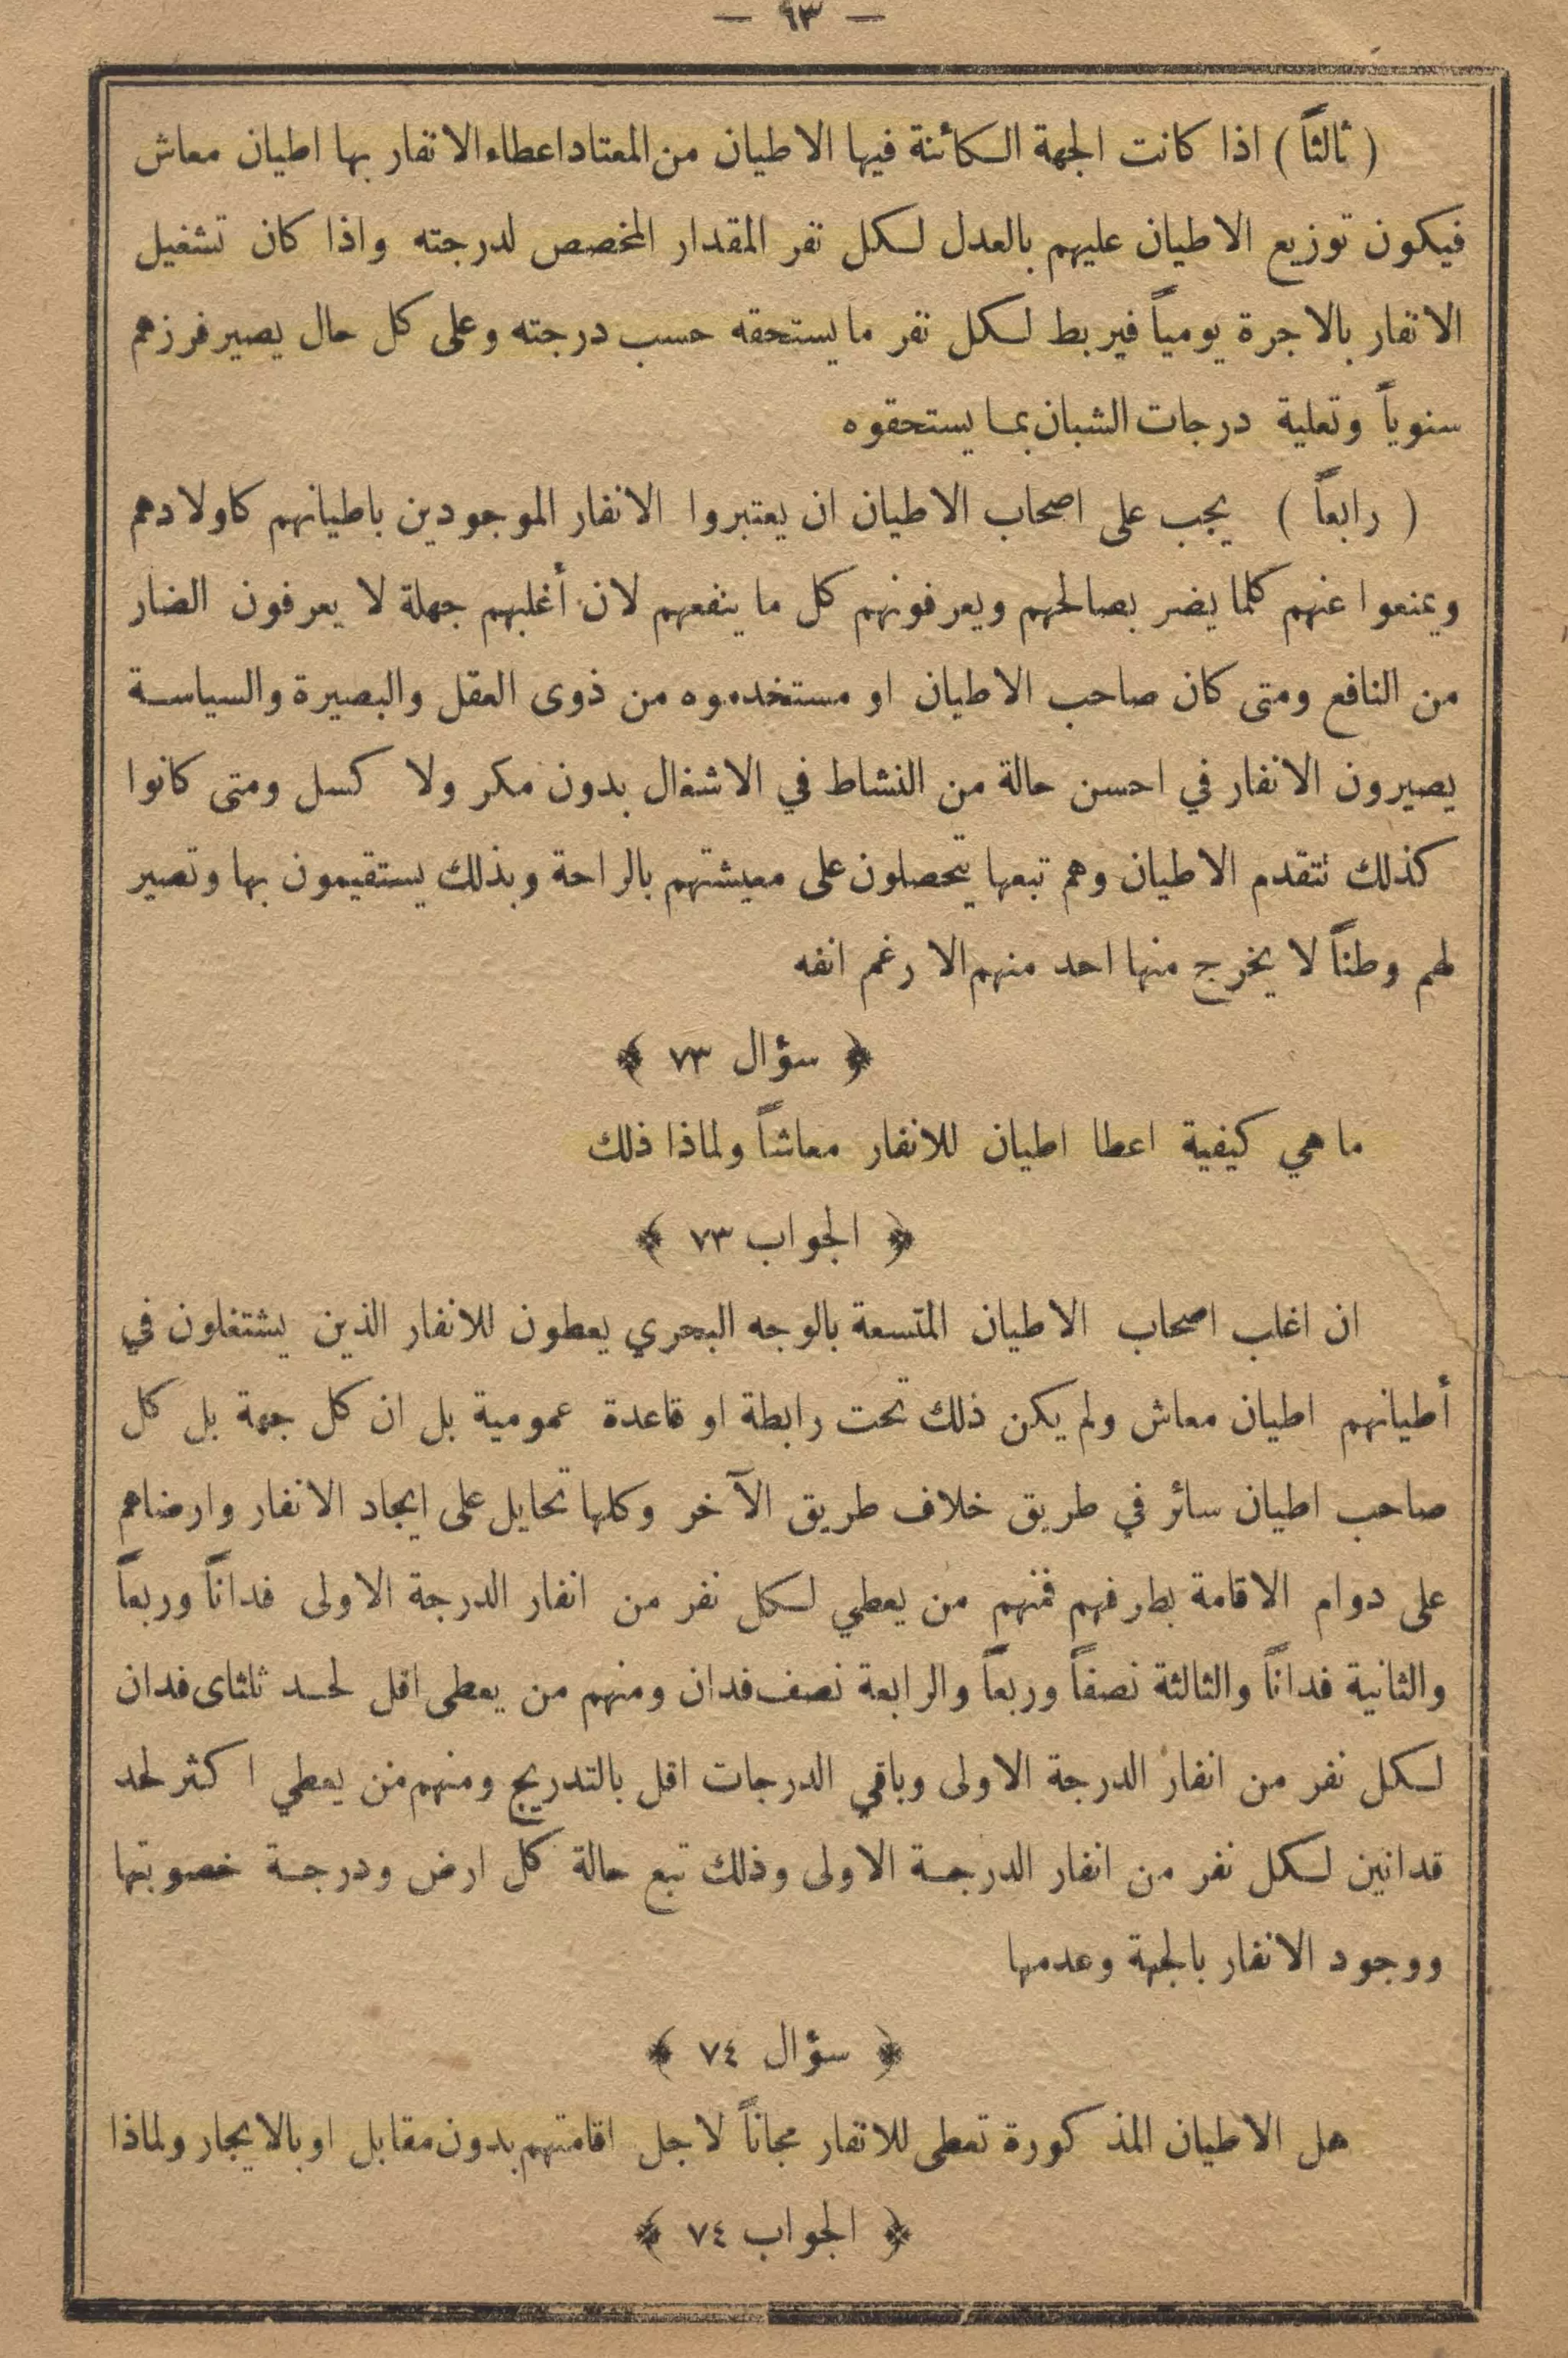 — ٦٣ —
( ثالثاً ) اذا كانت الجهة الكائنة فيها الاطيان من المعتاد اعطاء الانفار بها اطيان معاش
فيكون توزيع الاطيان عليهم بالعدل لكل نفر المقدار المخصص لدرجته واذا كان تشغيل
الانفار بالاجرة يومياً فيربط لكل نفر ما يستحقه حسب درجته وعلى كل حال يصير فرزهم
سنوياً وتعلية درجات الشبان بما يستحقوه
( رابعاً ) يجب على اصحاب الاطيان ان يعتبروا الانفار الموجودين باطيانهم كاولادهم
ويمنعوا عنهم كلما يضر بصالحهم ويعرفونهم كل ما ينفعهم لان أغلبهم جهلة لا يعرفون الضار
من النافع ومتى كان صاحب الاطيان او مستخدموه من ذوى العقل والبصيرة والسياسة
يصيرون الانفار في احسن حالة من النشاط في الاشغال بدون مكر ولا كسل ومتى كانوا
كذلك تتقدم الاطيان وهم تبعها يتحصلون على معيشتهم بالراحة وبذلك يستقيمون بها وتصير
لهم وطناً لا يخرج منها احد منهم الا رغم انفه
﴿ سؤال ٧٣ ﴾
ما هي كيفية اعطا اطيان للانفار معاشاً ولماذا ذلك
﴿ الجواب ٧٣ ﴾
ان اغلب اصحاب الاطيان المتسعة بالوجه البحري يعطون للانفار الذين يشتغلون في
أطيانهم اطيان معاش ولم يكن ذلك تحت رابطة او قاعدة عمومية بل ان كل جهة بل كل
صاحب اطيان سائر في طريق خلاف طريق الآخر وكلها تحايل على ايجاد الانفار وارضاهم
على دوام الاقامة بطرفهم فمنهم من يعطي لكل نفر من انفار الدرجة الاولى فداناً وربعاً
والثانية فداناً والثالثة نصفاً وربعاً والرابعة نصف فدان ومنهم من يعطى اقل لحد ثلثاى فدان
لكل نفر من انفار الدرجة الاولى وباقي الدرجات اقل بالتدريج ومنهم من يعطي اكثر لحد
فدانين لكل نفر من انفار الدرجة الاولى وذلك تبع حالة كل ارض ودرجة خصوبتها
ووجود الانفار بالجهة وعدمها
﴿ سؤال ٧٤ ﴾
هل الاطيان المذكورة تعطى للانفار مجاناً لاجل اقامتهم بدون مقابل او بالايجار ولماذا
﴿ الجواب ٧٤ ﴾